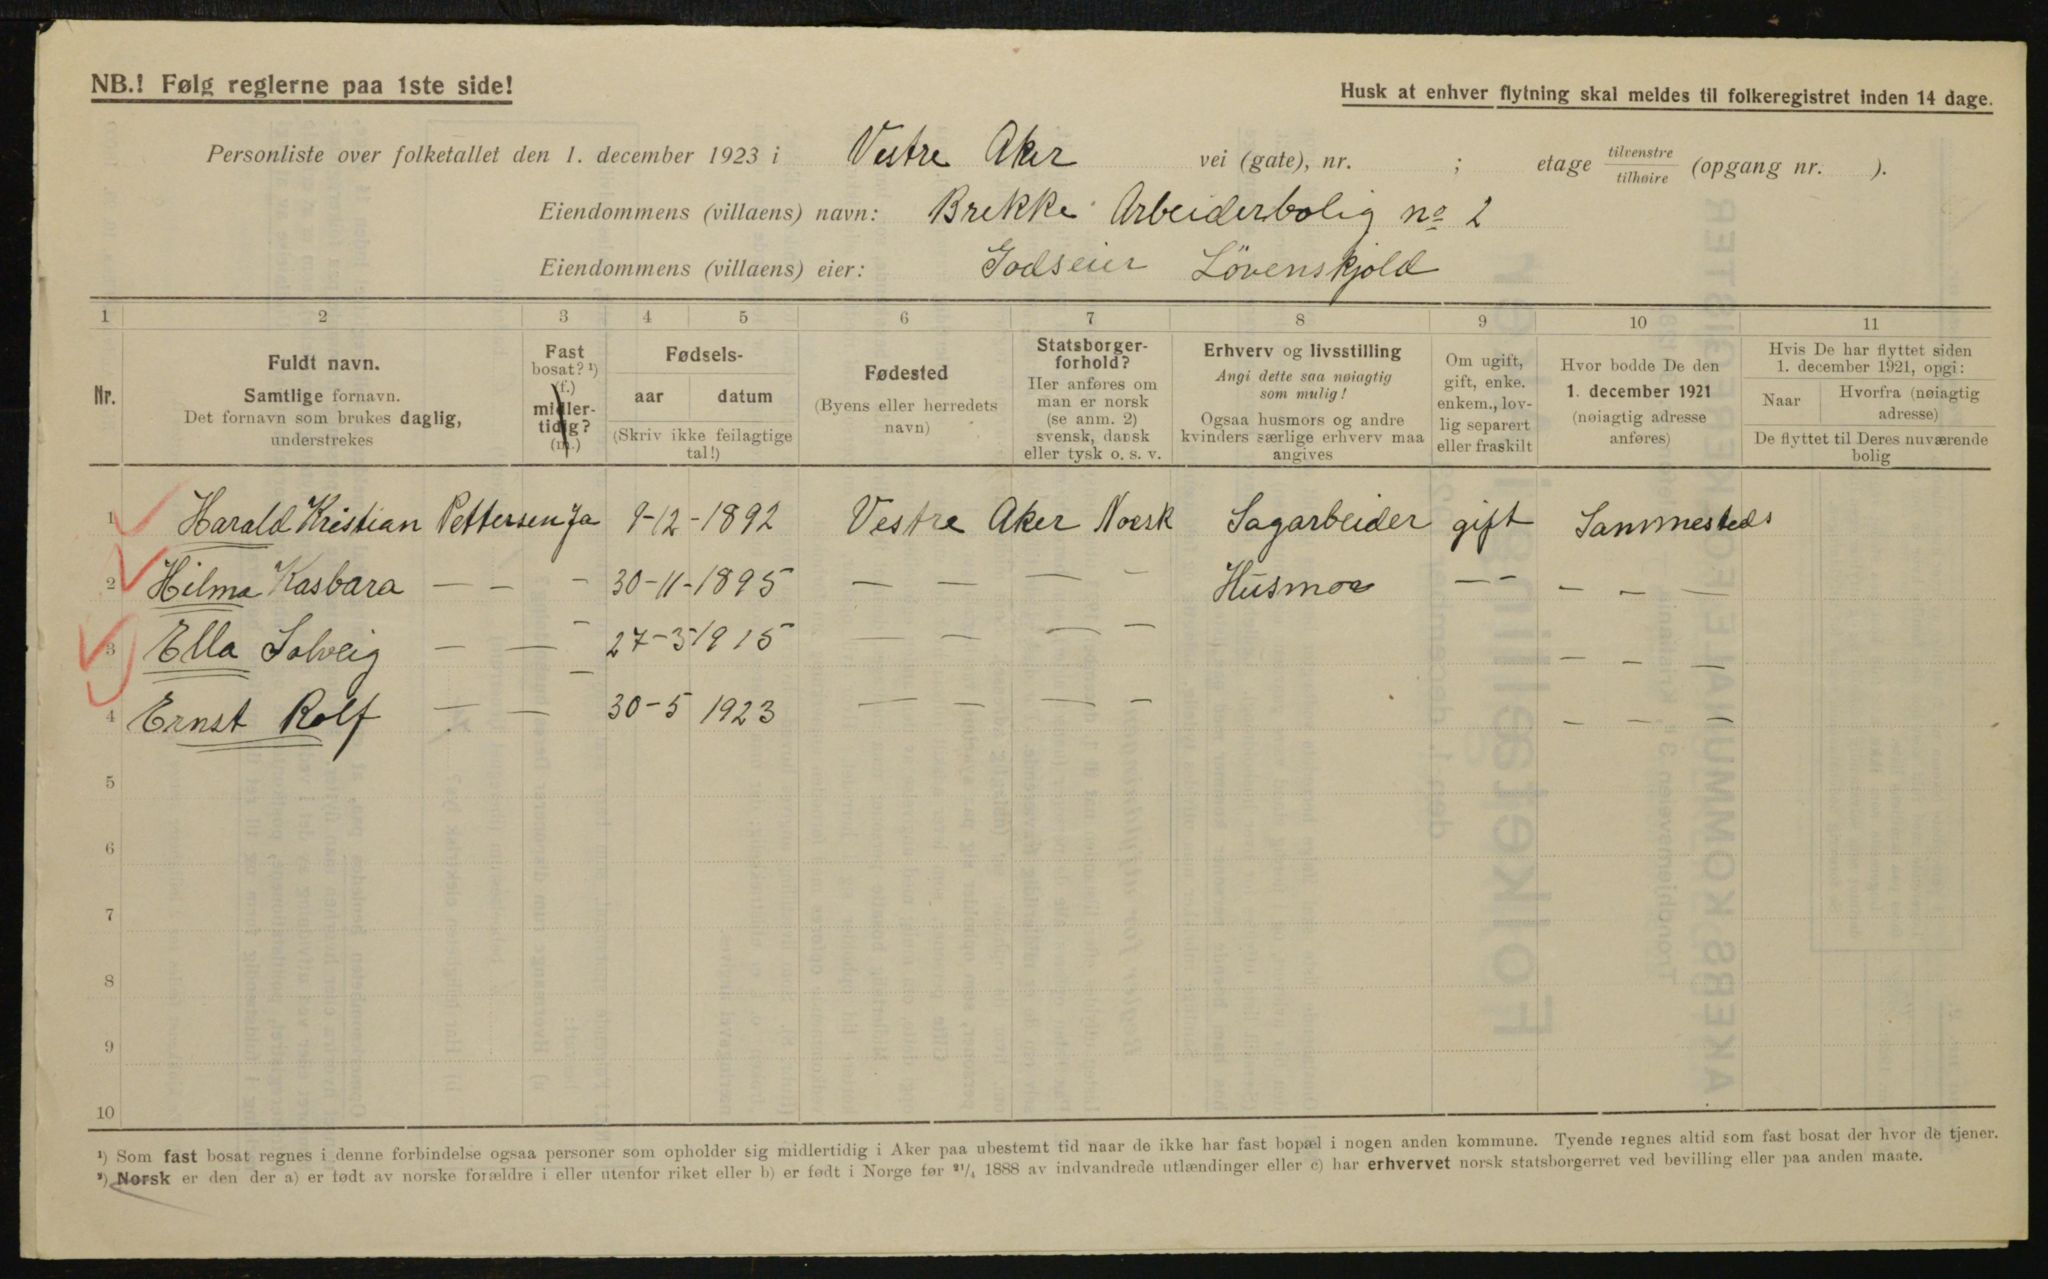 NB.! Følg reglerne paa 1ste side!
Husk at enhver flytning skal meldes til folkeregistret inden 14 dage.
Personliste over folketallet den 1. december 1923 i Vestre Aker vei (gate), nr. ; etage tilvenstre/tilhøire (opgang nr. ).
Eiendommens (villaens) navn: Brekke Arbeiderbolig no 2
Eiendommens (villaens) eier: Godseier Lövenskjold
1 2 3 4 5 6 7 8 9 10 11
Nr.
Fuldt navn.
Samtlige fornavn.
Det fornavn som brukes daglig,
understrekes
Fast
bosat? ¹)
(f.)
midler-
tidig?
(m.)
Fødsels-
aar datum
(Skriv ikke feilagtige
tal!)
Fødested
(Byens eller herredets
navn)
Statsborger-
forhold?
Her anføres om
man er norsk
(se anm. 2)
svensk, dansk
eller tysk o. s. v.
Erhverv og livsstilling
Angi dette saa nøiagtig
som mulig!
Ogsaa husmors og andre
kvinders særlige erhverv maa
angives
Om ugift,
gift, enke.
enkem., lov-
lig separert
eller fraskilt
Hvor bodde De den
1. december 1921
(nøiagtig adresse
anføres)
Hvis De har flyttet siden
1. december 1921, opgi:
Naar
Hvorfra (nøiagtig
adresse)
De flyttet til Deres nuværende
bolig
1 Harald Kristian Pettersen Ja 9-12-1892 Vestre Aker Norsk Sagarbeider gift Sammesteds
2 Hilma Kasbara — — - 30-11-1895 — — — - Husmor — - - - —
3 Ella Solveig — — - 27-3 1915 — — — - — - —
4 Ernst Rolf — — - 30-5 1923 — — — - — - —
5
6
7
8
9
10
¹) Som fast bosat regnes i denne forbindelse ogsaa personer som opholder sig midlertidig i Aker paa ubestemt tid naar de ikke har fast bopæl i nogen anden kommune. Tyende regnes altid som fast bosat der hvor de tjener.
²) Norsk er den der a) er født av norske forældre i eller utenfor riket eller b) er født i Norge før ²¹/₄ 1888 av indvandrede utlændinger eller c) har erhvervet norsk statsborgerret ved bevilling eller paa anden maate.